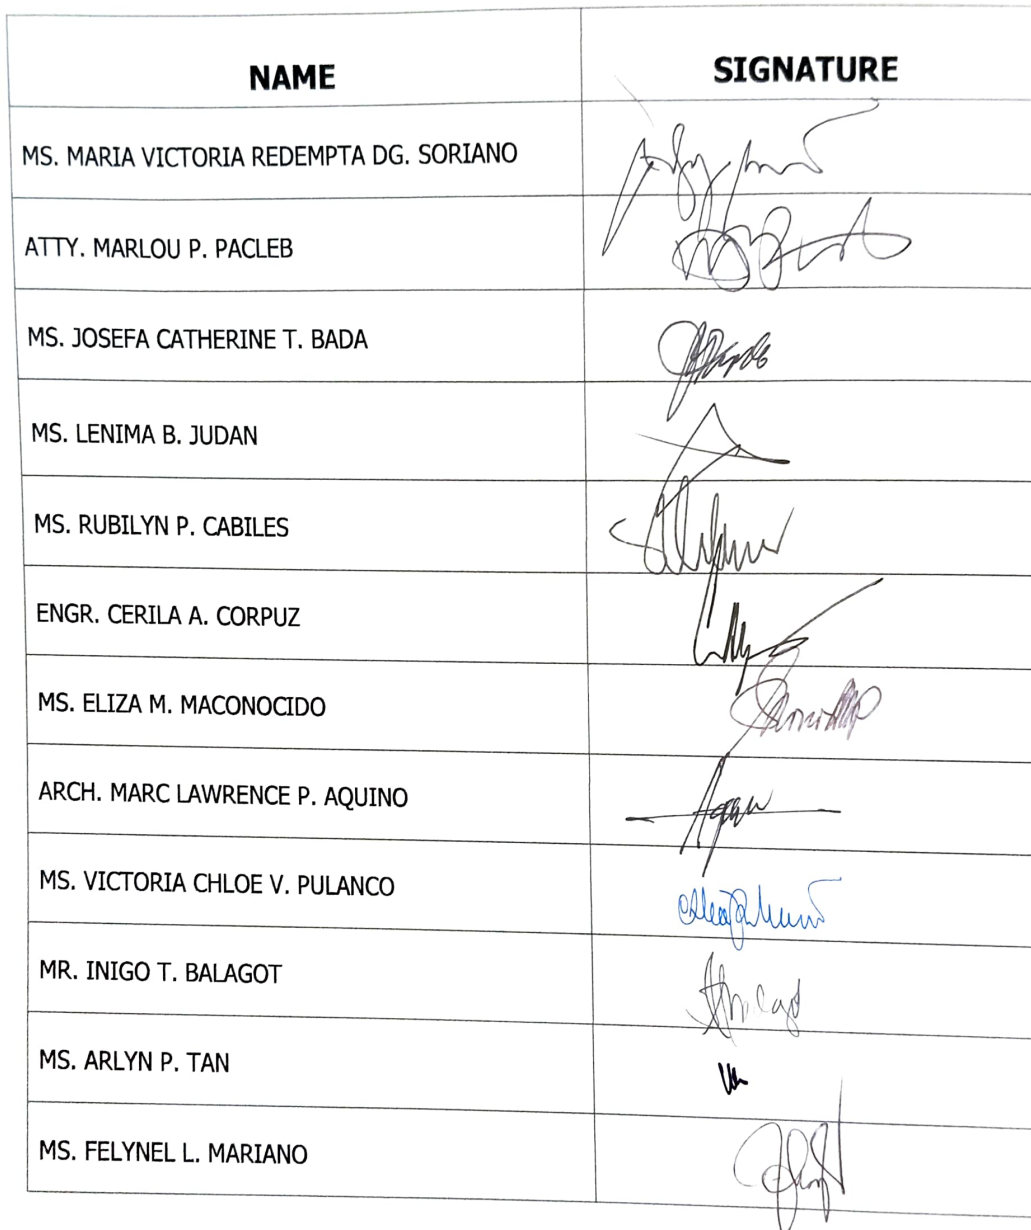 NAME SIGNATURE
MS. MARIA VICTORIA REDEMPTA DG. SORIANO
ATTY. MARLOU P. PACLEB
MS. JOSEFA CATHERINE T. BADA
MS. LENIMA B. JUDAN
MS. RUBILYN P. CABILES
ENGR. CERILA A. CORPUZ
MS. ELIZA M. MACONOCIDO
ARCH. MARC LAWRENCE P. AQUINO
MS. VICTORIA CHLOE V. PULANCO
MR. INIGO T. BALAGOT
MS. ARLYN P. TAN
MS. FELYNEL L. MARIANO